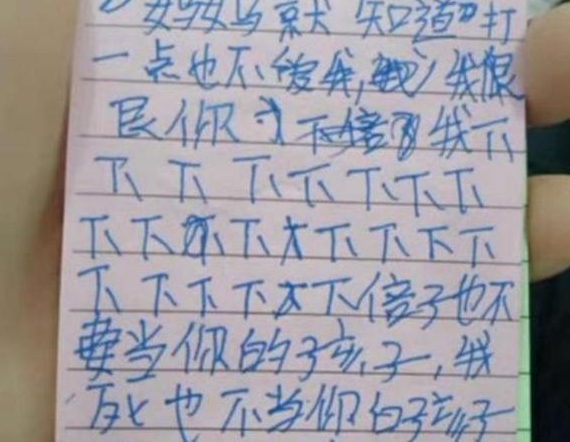 妈妈就知道打
一点也不爱我,我很
你下倍我下
下下下下下下下
下下下下下下下
下下下下下倍子也不
要当你的孩子,我
死也不当你的孩子